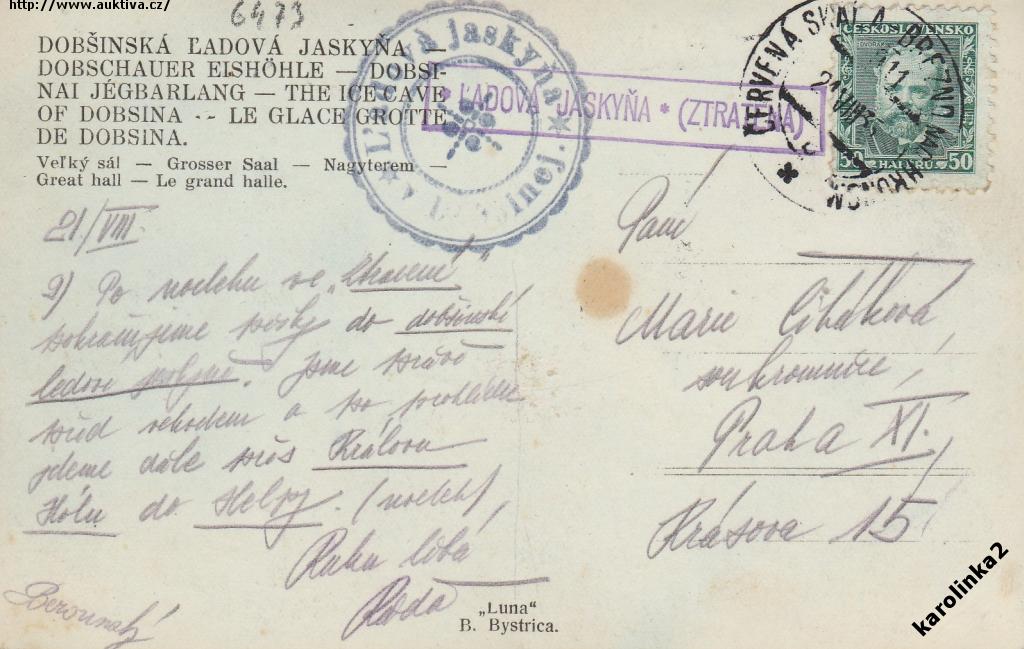 http://www.auktiva.cz/
6473
DOBŠINSKÁ ĽADOVÁ JASKYŇA —
DOBSCHAUER EISHÖHLE — DOBSI-
NAI JÉGBARLANG — THE ICE CAVE
OF DOBSINA -- LE GLACE GROTTE
DE DOBSINA.
Veľký sál — Grosser Saal — Nagyterem —
Great hall — Le grand halle.
* ĽADOVÁ JASKYŇA * (ZTRATENÁ)
ČERVENÁ SKALA - BREZNO
ČESKOSLOVENSKO
50 HALÉŘŮ 50
21/VIII.
9) Po noclehu ve „Ztracené"
pokračujeme pěšky do dobšinské
ledové jeskyně. Jsme právě
před vchodem a po prohlídce
jdeme dále přes Královu
Hólu do Helpy. (nocleh)
Ruku líbá
Rada
Berounský
Paní
Marie Cibáková
soukromnice,
Praha XI.
Krásova 15
„Luna"
B. Bystrica.
karolinka2